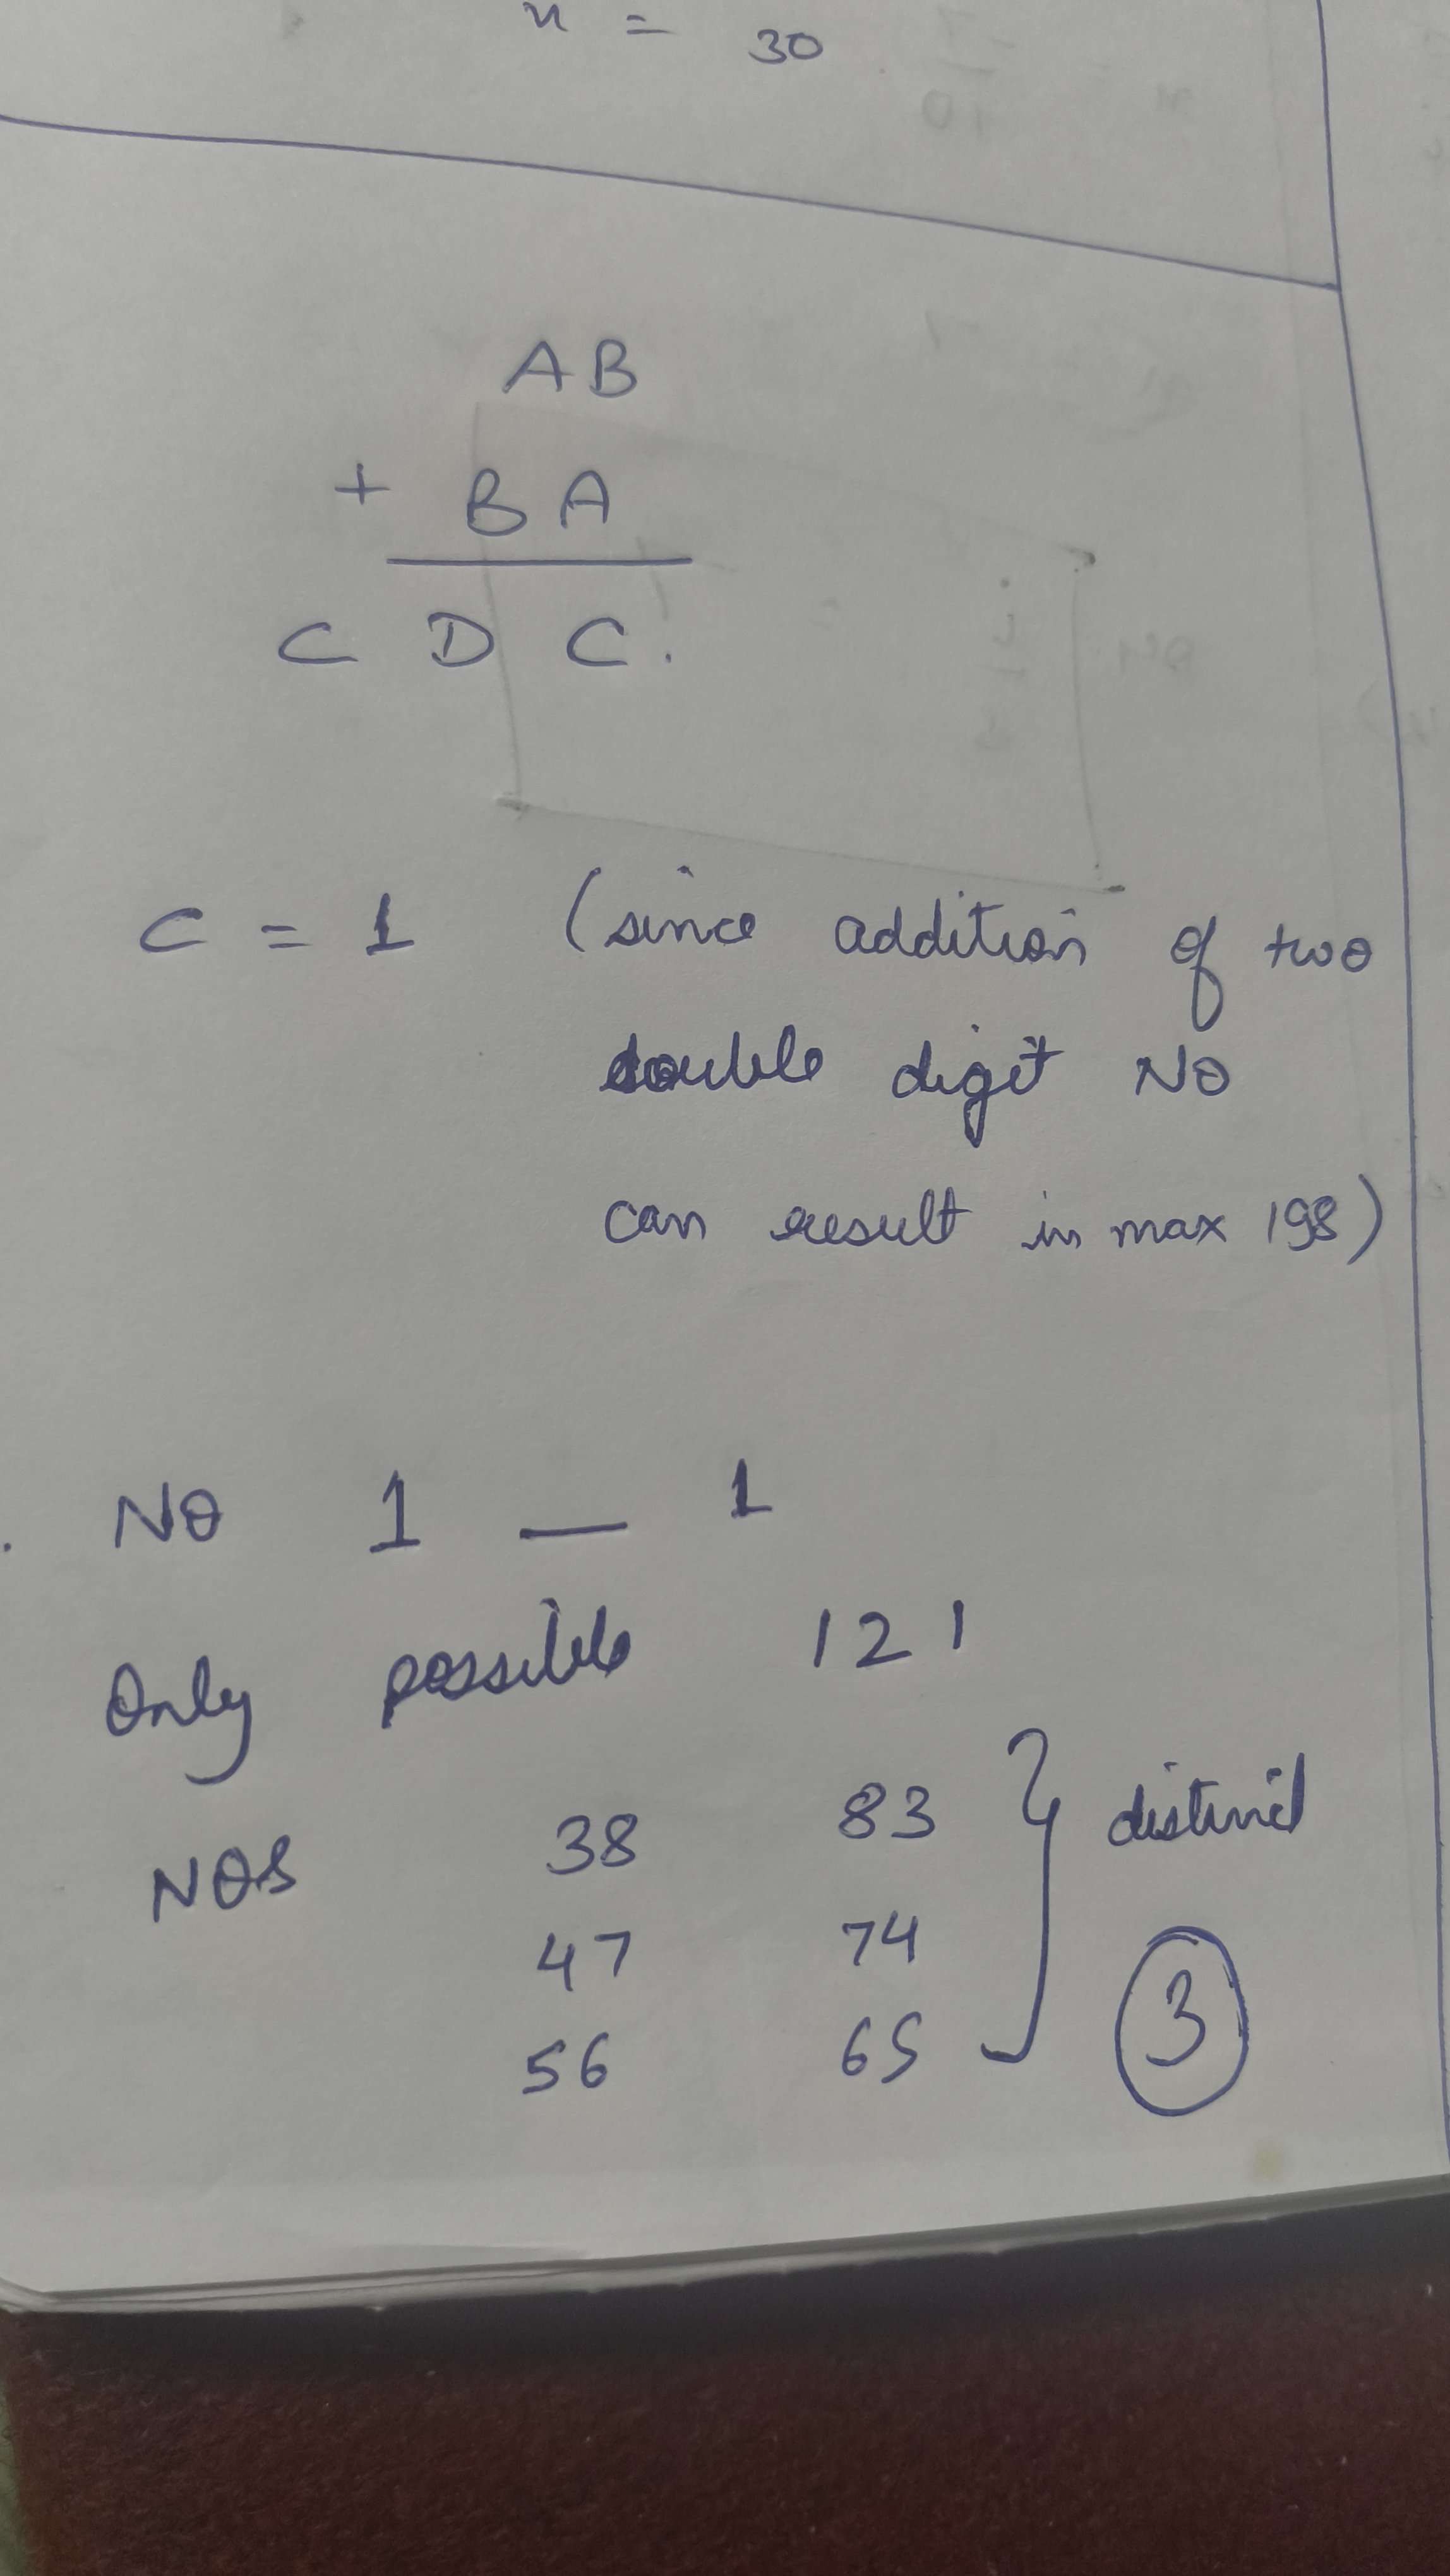 x = 30
A B
+ B A
C D C.
C = 1 (since addition of two
double digit No
can result in max 198)
. No 1 __ 1
Only possible 121
Nos 38 83 } distinct
47 74
56 65 3